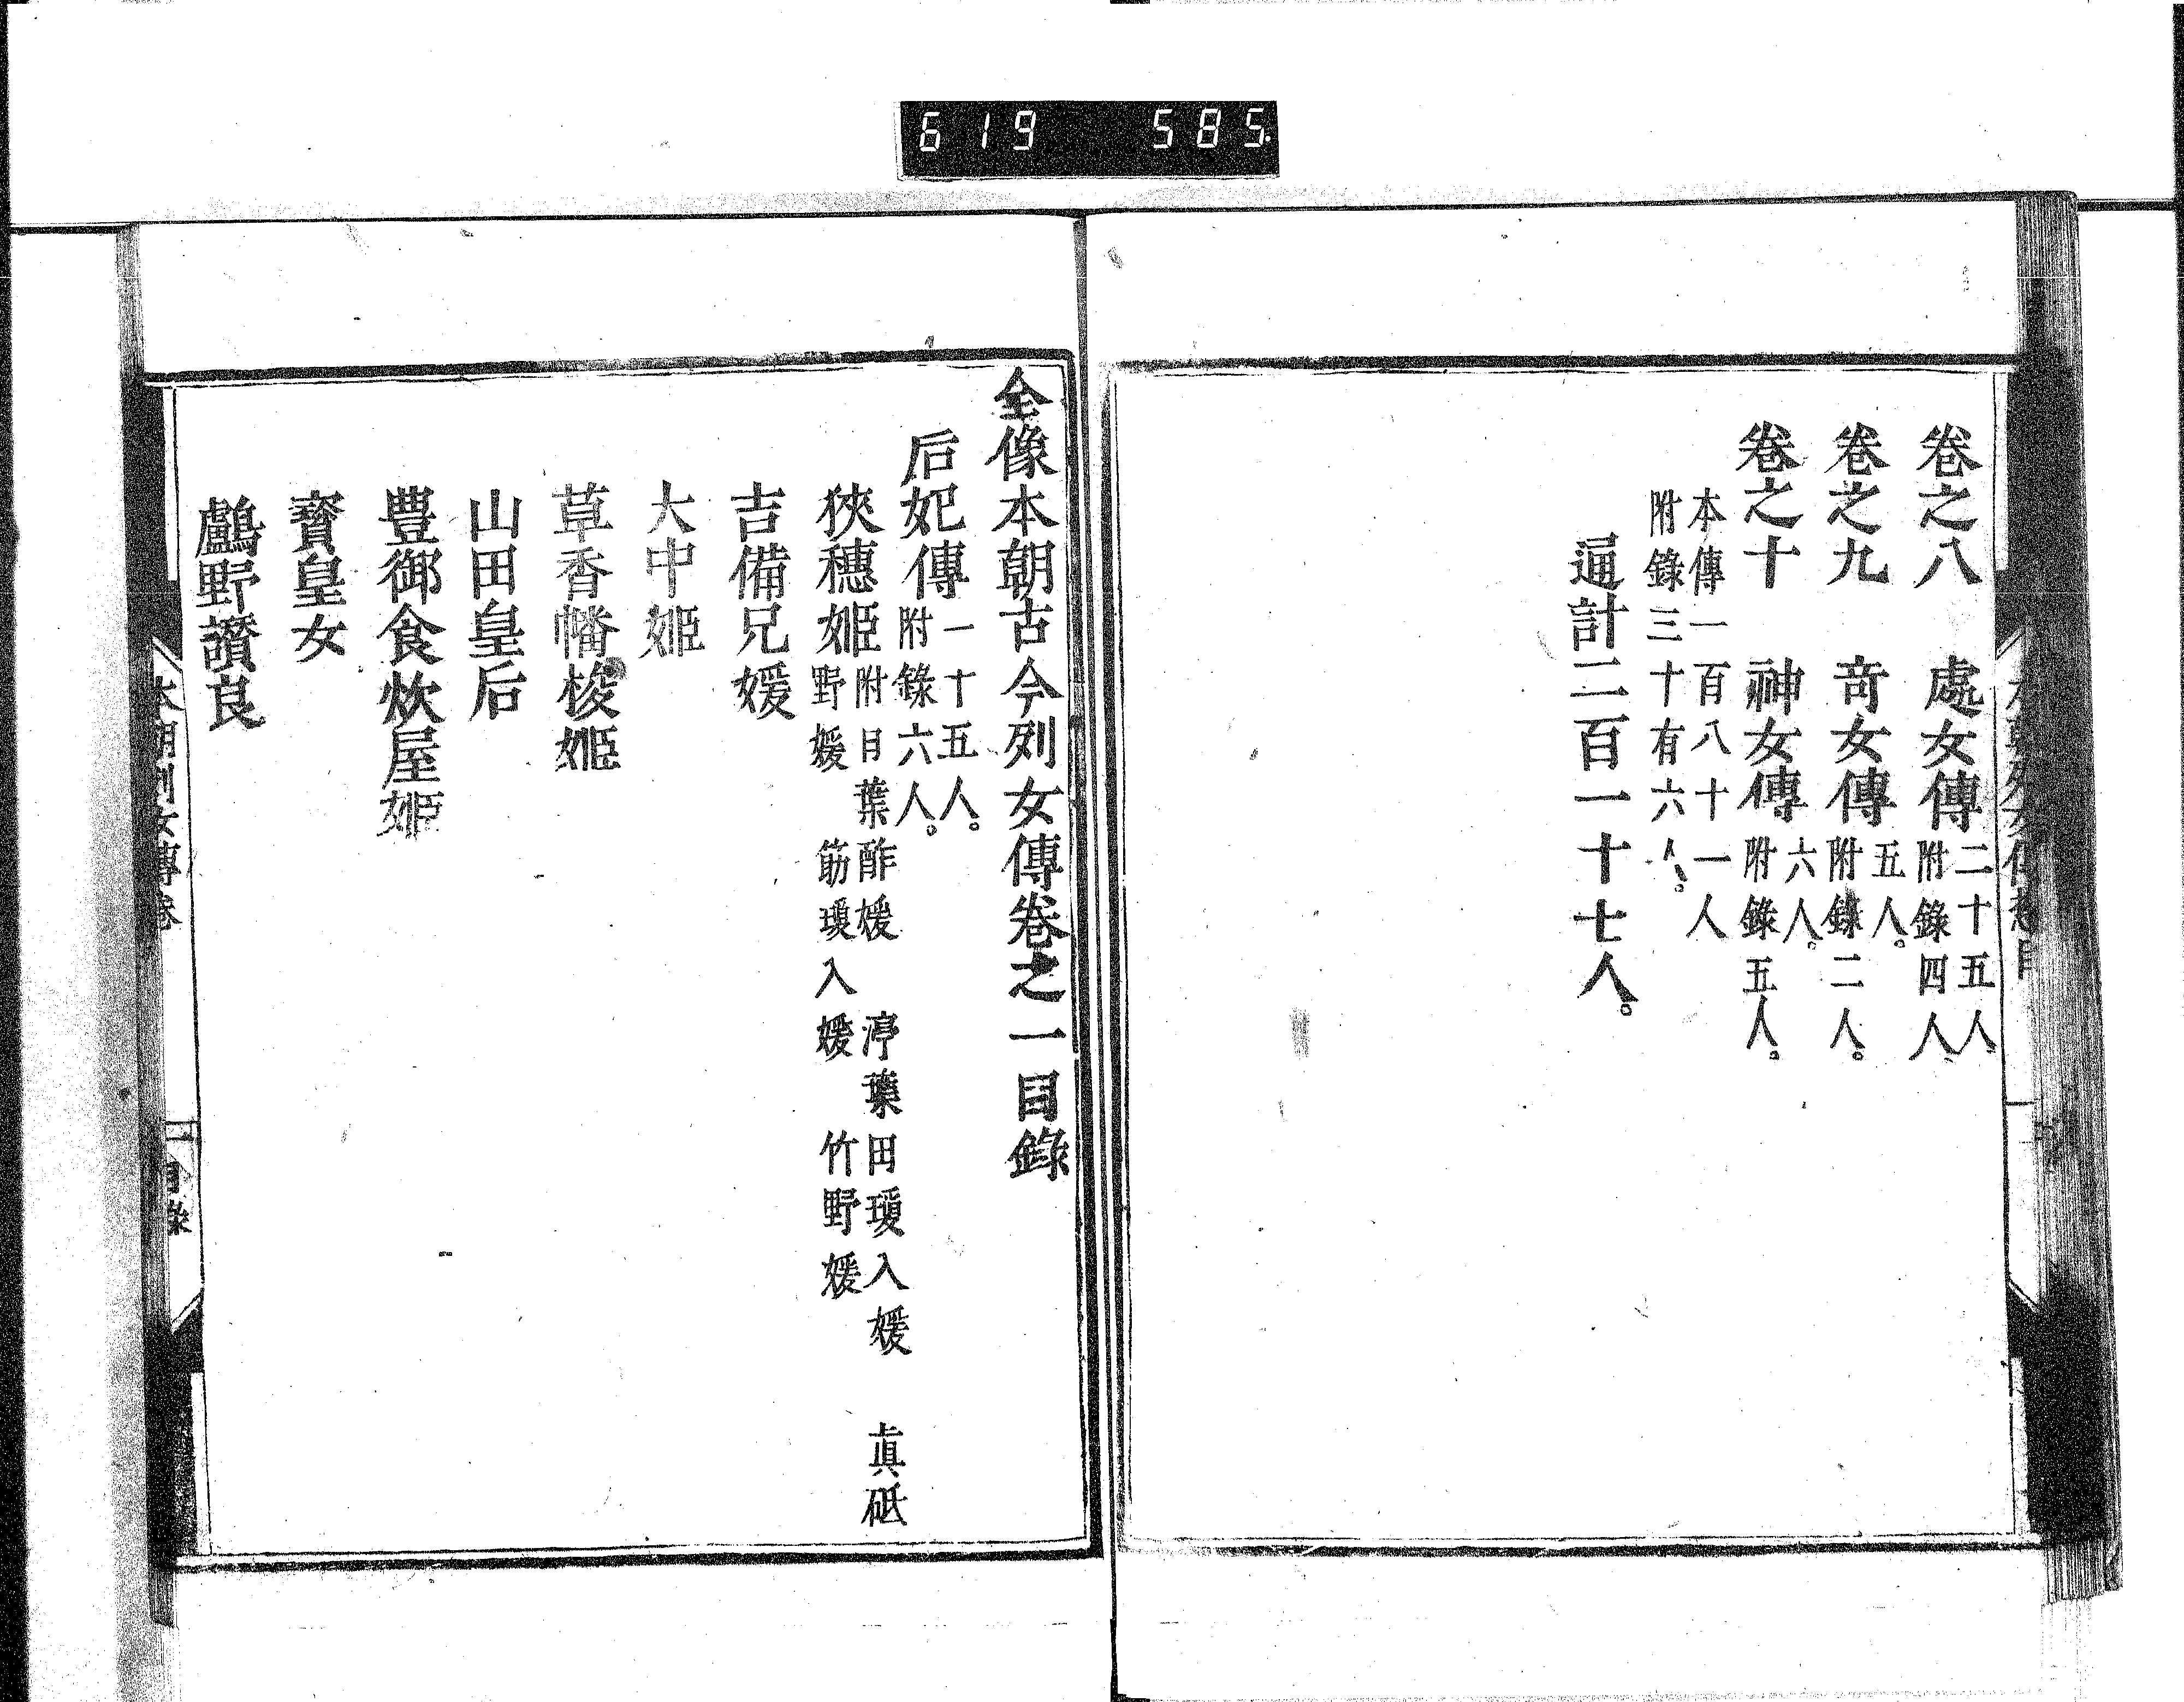 619 585
卷之八 處女傳 二十五人 附錄四人
卷之九 竒女傳 五人 附錄二人
卷之十 神女傳 六人 附錄五人
本傳一百八十一人
附錄三十有六人
通計二百一十七人
全像本朝古今列女傳卷之一目錄
后妃傳 一十五人 附錄六人
狹穗姬 附日葉酢媛 渟葉田瓊入媛 眞砥野媛 筋瓊入媛 竹野媛
吉備兄媛
大中姬
草香幡梭姬
山田皇后
豊御食炊屋姬
寳皇女
鸕野讚良
本朝列女傳卷 一 目錄